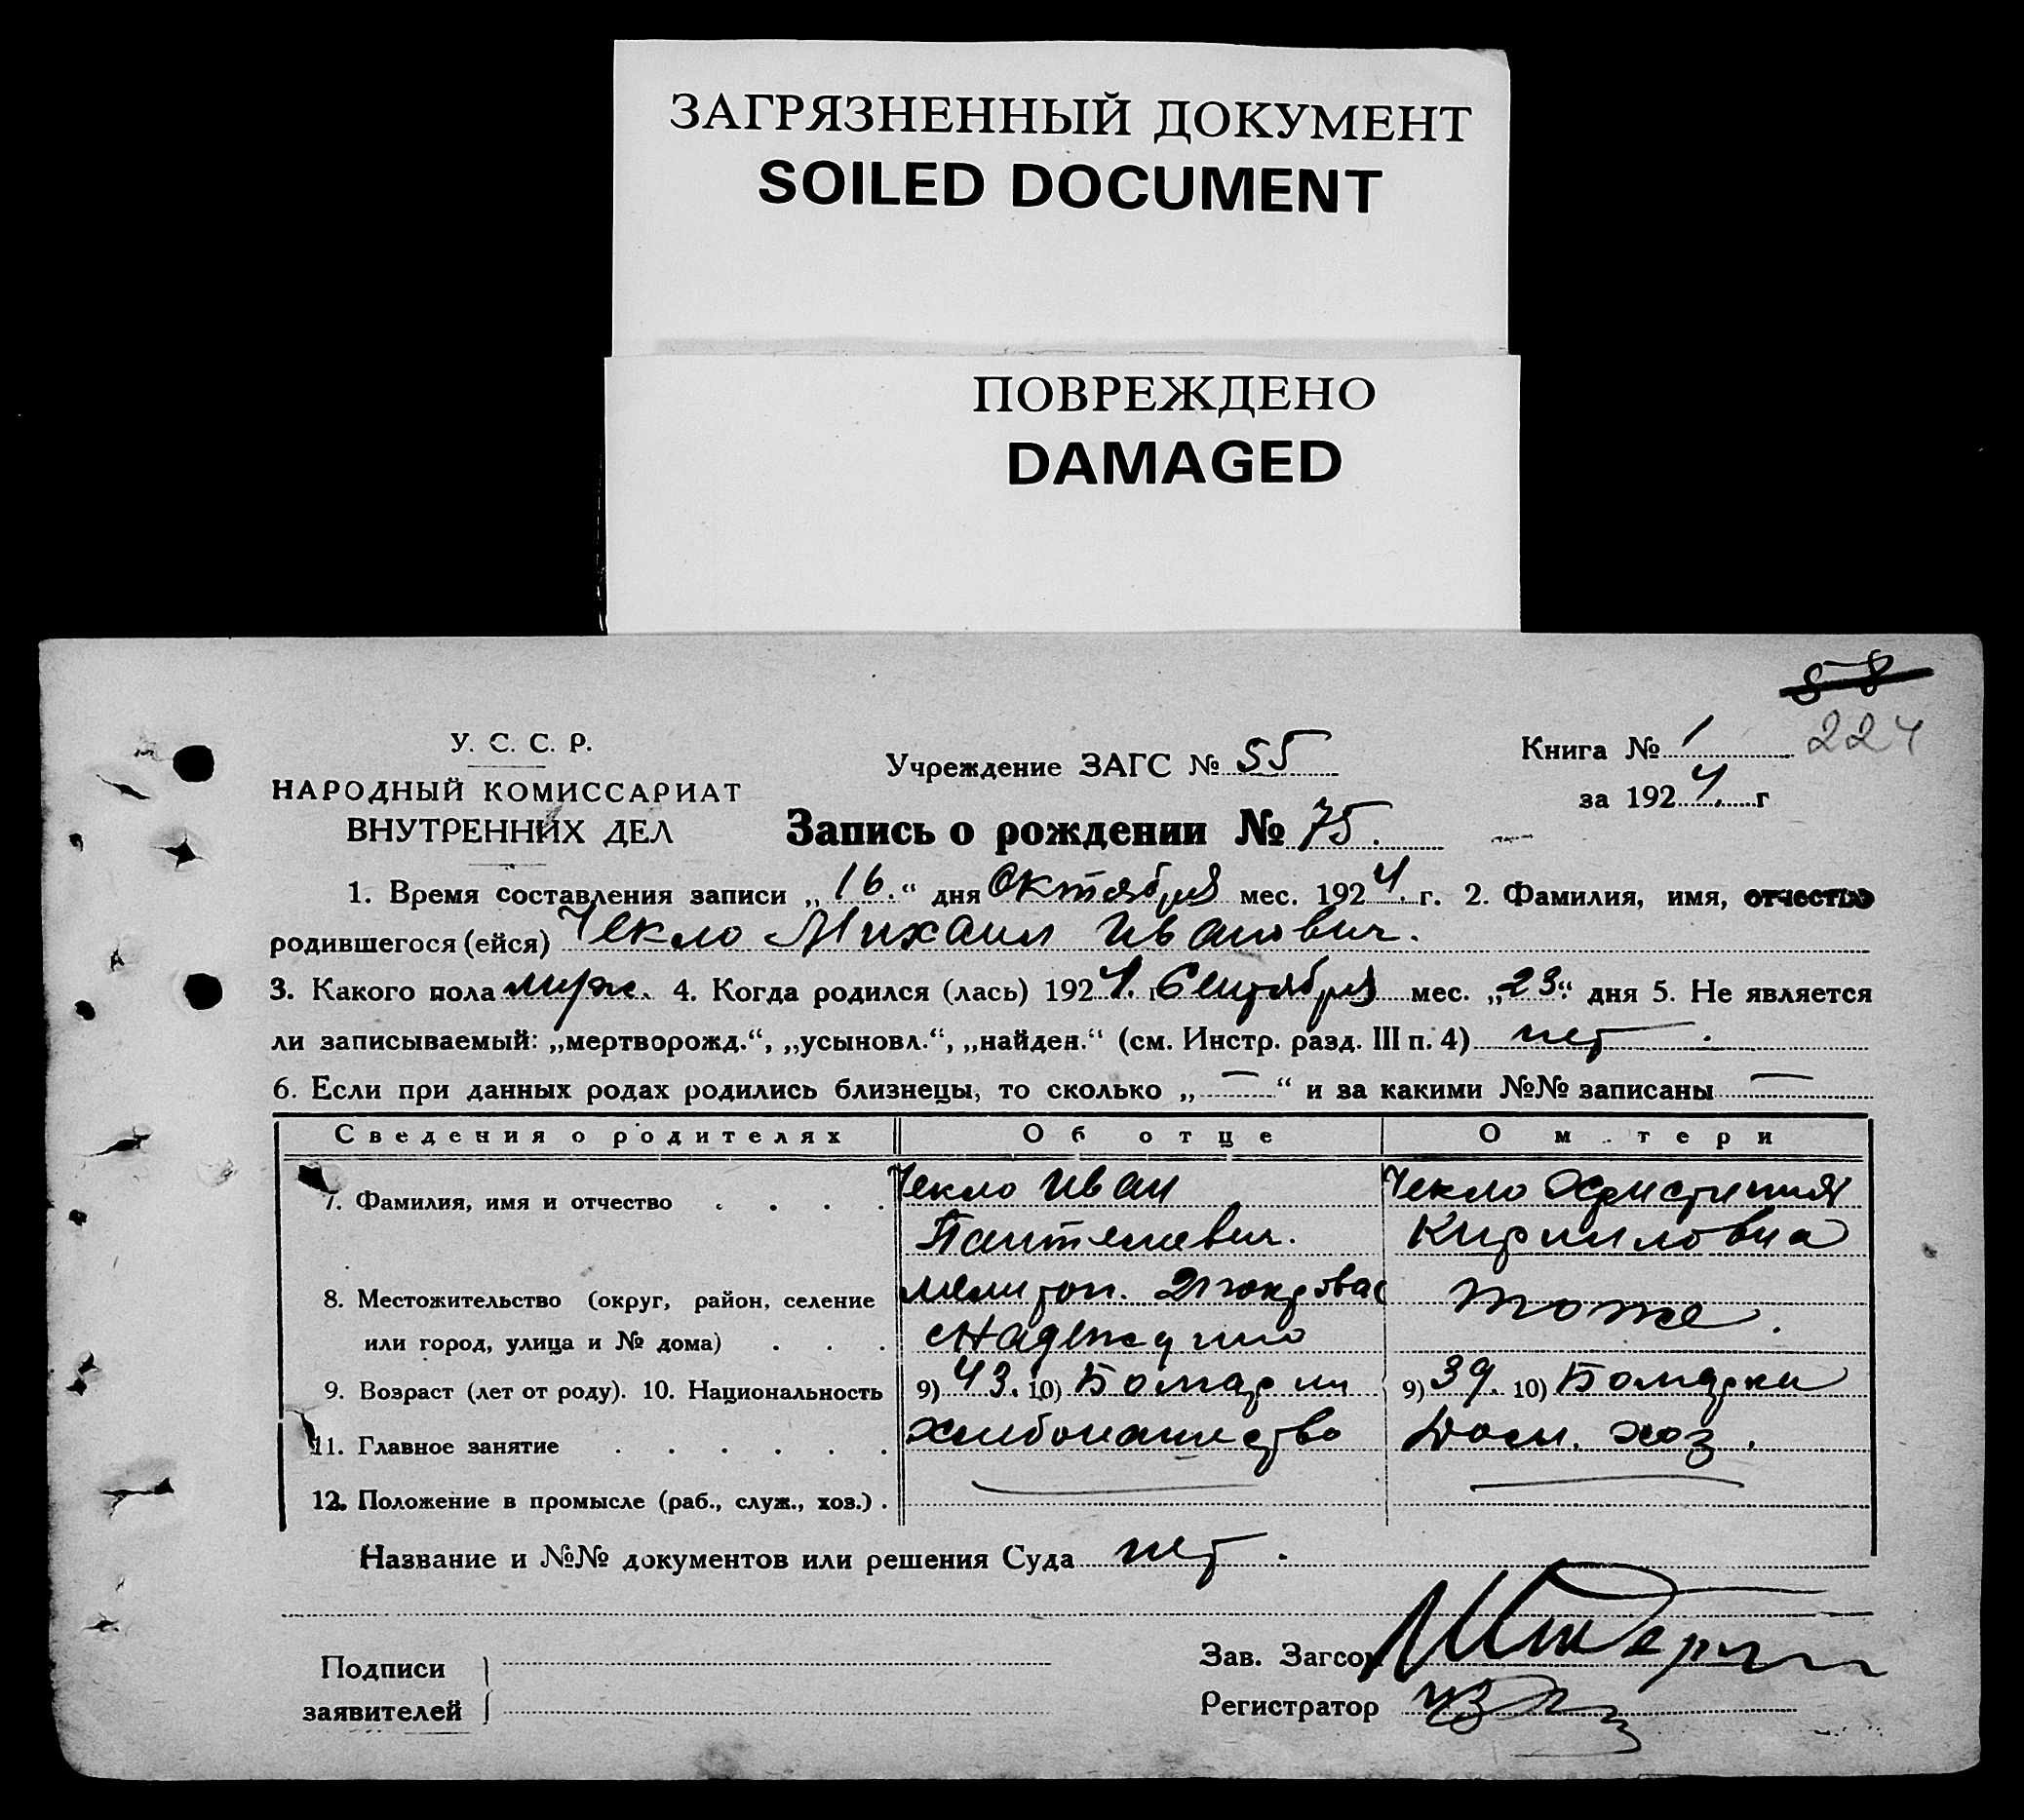 ЗАГРЯЗНЕННЫЙ ДОКУМЕНТ
SOILED DOCUMENT
ПОВРЕЖДЕНО
DAMAGED
58
У. С. С. Р.
НАРОДНЫЙ КОМИССАРИАТ
ВНУТРЕННИХ ДЕЛ
Учреждение ЗАГС № 55
Книга № 1 224
за 1924 г
Запись о рождении № 75.
1. Время составления записи „16.“ дня Октября мес. 1924. г. 2. Фамилия, имя, отчество
родившегося (ейся) Чекло Михаил Иванович.
3. Какого пола муж. 4. Когда родился (лась) 1924. г. Сентября мес. „23“ дня 5. Не является
ли записываемый: „мертворожд.“, „усыновл.“, „найден.“ (см. Инстр. разд. III п. 4) нет.
6. Если при данных родах родились близнецы, то сколько „—“ и за какими №№ записаны —
Сведения о родителях Об отце О м тери
7. Фамилия, имя и отчество . . . . Чекло Иван Чекло Христиния
Пантелевич. Кирилловна
8. Местожительство (округ, район, селение Мелитоп. тоже.
или город, улица и № дома) . . .
9. Возраст (лет от роду). 10. Национальность 9) 43. 10) Болгарин 9) 39. 10) Болгарка
11. Главное занятие . . . . . . Хлебопашество Дом. хоз.
12. Положение в промысле (раб., служ., хоз.) .
Название и №№ документов или решения Суда нет.
Подписи
заявителей
Зав. Загсом
Регистратор